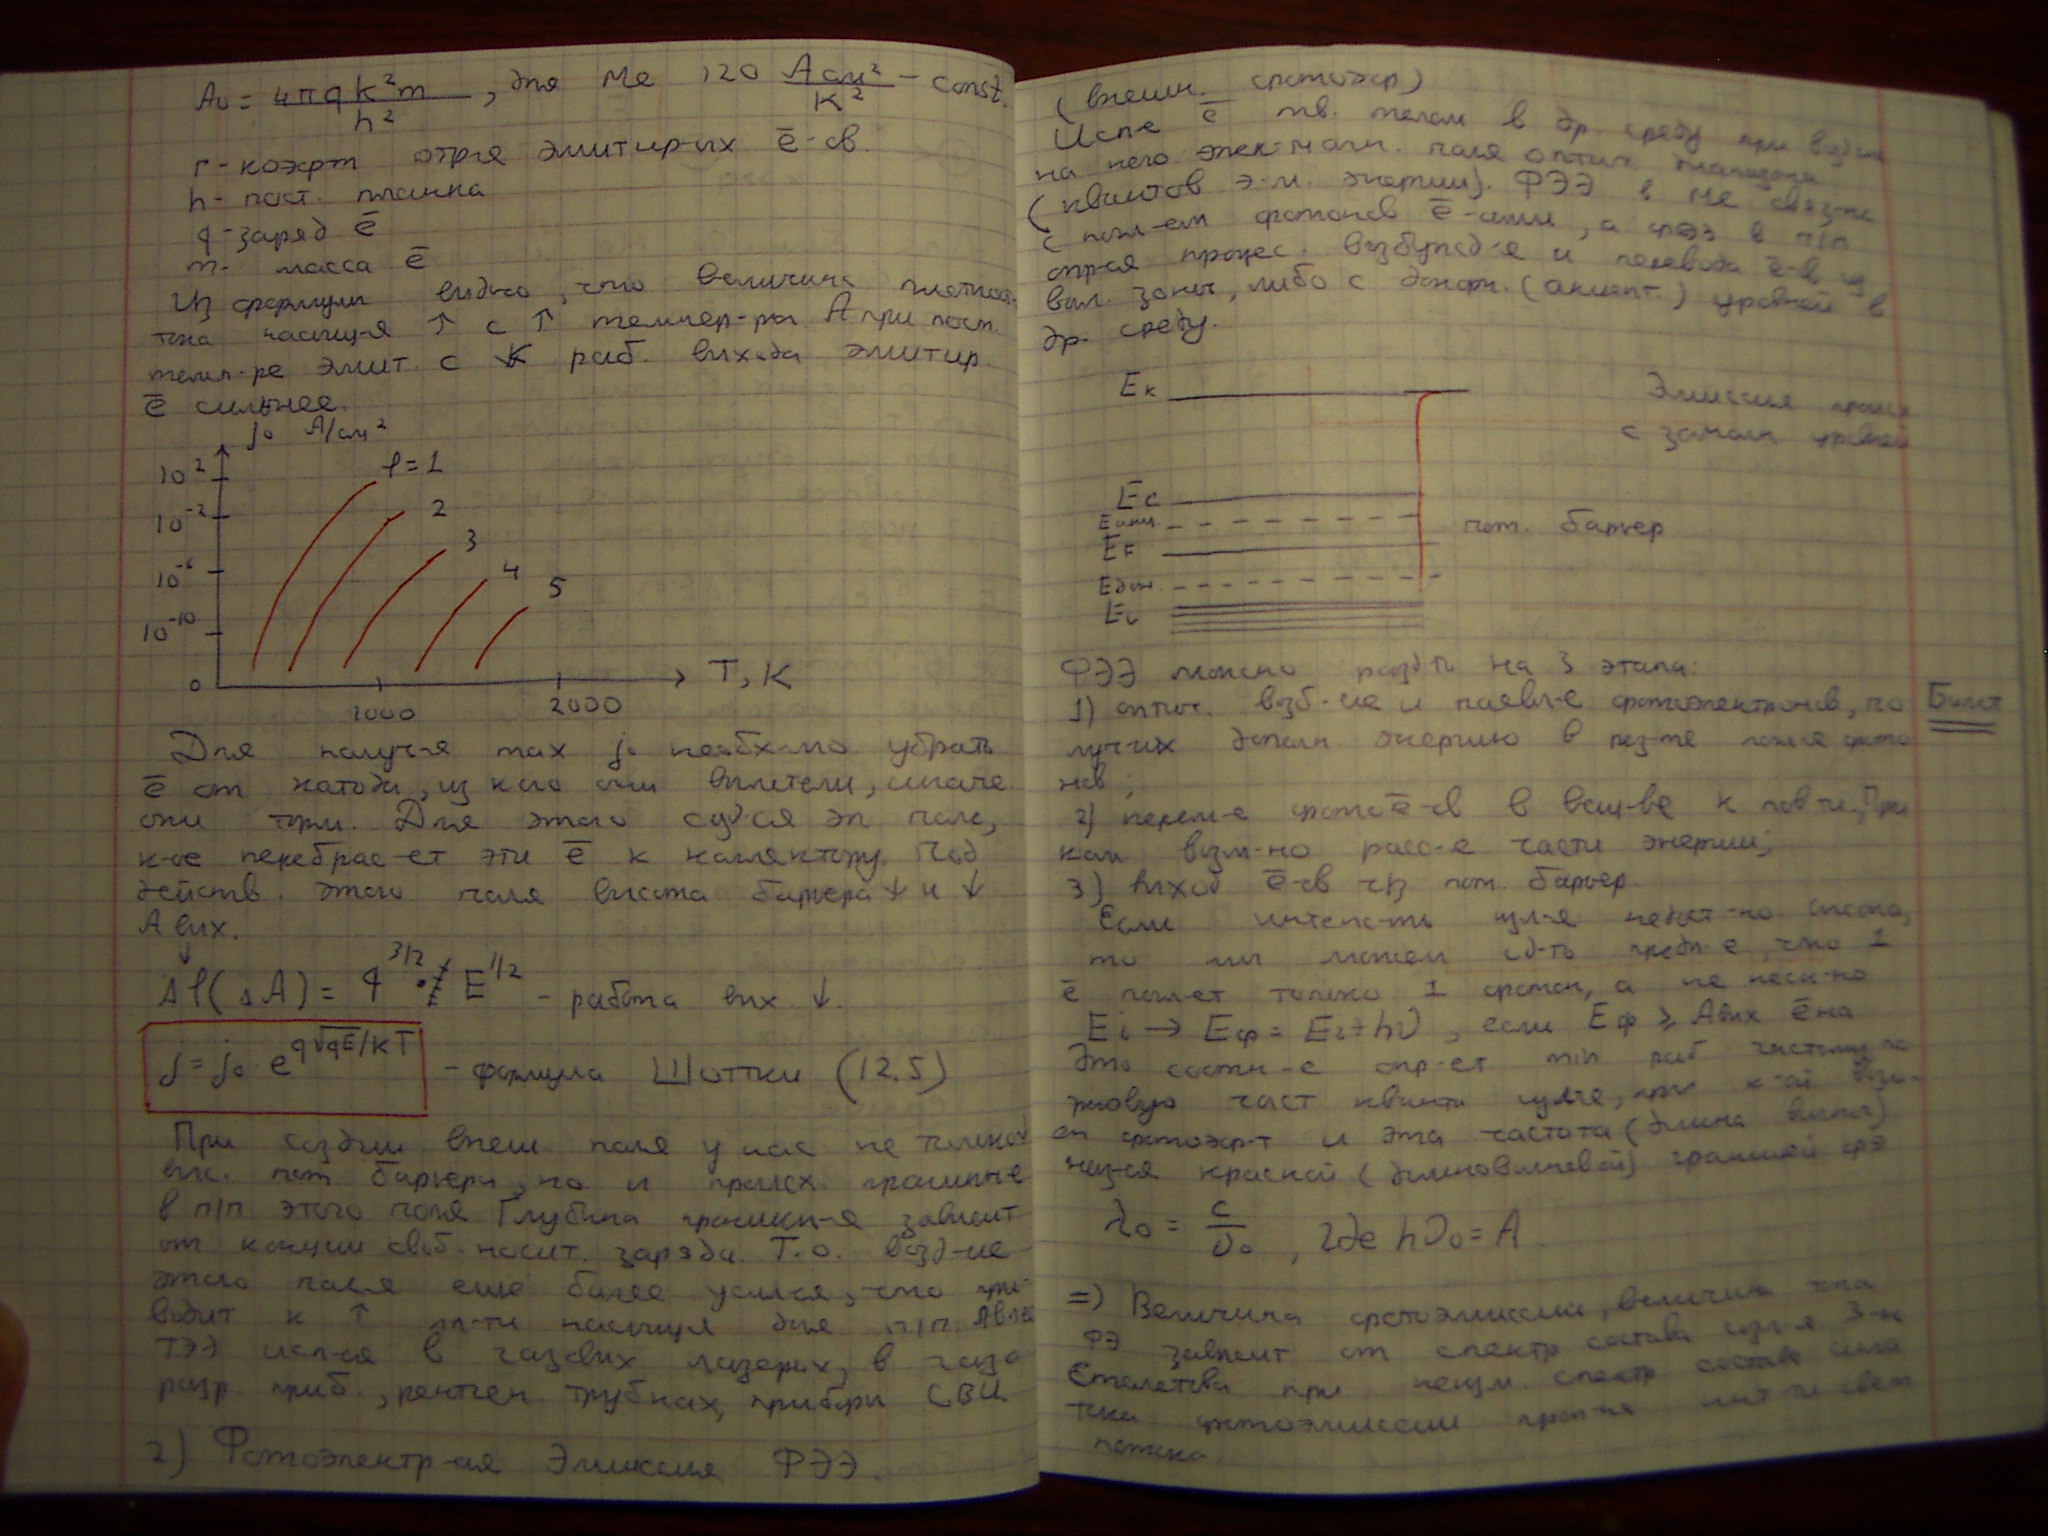 A₀ = 4πqk²m / h² , для Ме 120 Асм² / К² – const.
r - коэфт отр-я эмитир-ых ē-ов.
h - пост. планка
q - заряд ē
m - масса ē
Из формулы видно, что величина плотност.
тока насыщ-я ↑ с ↑ темпер-ры. А при пост.
темп-ре эмит. с раб. выхода эмитир.
ē сильнее.
j₀ А/см²
10²
10⁻²
10⁻⁶
10⁻¹⁰
0
φ=1
2
3
4
5
1000
2000
T, K
Для получ-я max j₀ необх-мо убрать
ē от катода, из к-ого они вылетели, иначе
они торм. Для этого созд-ся эл поле,
к-ое перебрас-ет эти ē к коллектору. Под
действ. этого поля высота барьера ↓ и ↓
А вых.
↓
Δφ(ΔA) = q^3/2 · E^1/2 – работа вых ↓.
j = j₀ · e^q√qE/кT – формула Шоттки (12.5)
При создании внеш. поля у нас не только
пот барьера, но и происх.
в п/п этого поля Глубина проникн-я зависит
от конции своб. носит. заряда. Т.о. возд-ие
этого поля еще более усился, что при-
водит к ↑ пл-ти насыщя для п/п. Авых
ТЭЭ исп-ся в газовых лазерах, в газо
разр. приб., рентген. трубках, приборы СВЧ.
2) Фотоэлектр-ая Эмиссия ФЭЭ.
(внешн. фотоэф)
Исп-е ē тв. телом в др. среду при возд-и
на него элек-магн. поля оптич диапазона
(квантов э.м. энергии). ФЭЭ в Ме связ-на
с погл-ем фотонов ē-ами, а фээ в п/п
опр-ся процес. возбужд-я и перевода ē-в из
вал. зоны, либо с донорн. (акцепт.) уровней в
др. среду.
Eк
Ec
Eакц.
EF
Eдон.
Ev
Эмиссия
с уровней
пот. барьер
ФЭЭ можно раздть на 3 этапа:
1) оптич. возб-ие и появл-е фотоэлектронов, по Билет
лучих дополн. энергию в рез-те погл-я фото
нов;
2) перем-е фото ē-ов в вещ-ве к пов-ти, При
ком возм-но расс-е части энергии;
3) выход ē-ов чз пот. барьер.
Если интенс-ть изл-я недост-но
то мы можем сд-ть предп-е, что 1
ē погл-ет только 1 фотон, а не неск-ко
Ei → Eф = Ei + hν, если Eф ≥ Авых ē на
Это соотн-е опр-ет min раб частоту по
роговую част кванта изл-е, при к-ой возм-
ен фотоэф-т и эта частота (длина волны)
наз-ся красной (длинноволновой) границей фэ
λ₀ = c / ν₀ , где hν₀ = A.
=) Величина фотоэмиссии, величина тока
ФЭ зависит от спектр состава изл-я З-н
Столетова при неизм. спектр. составе сила
тока фотоэмиссии проп-на инт-ти свет
потока.